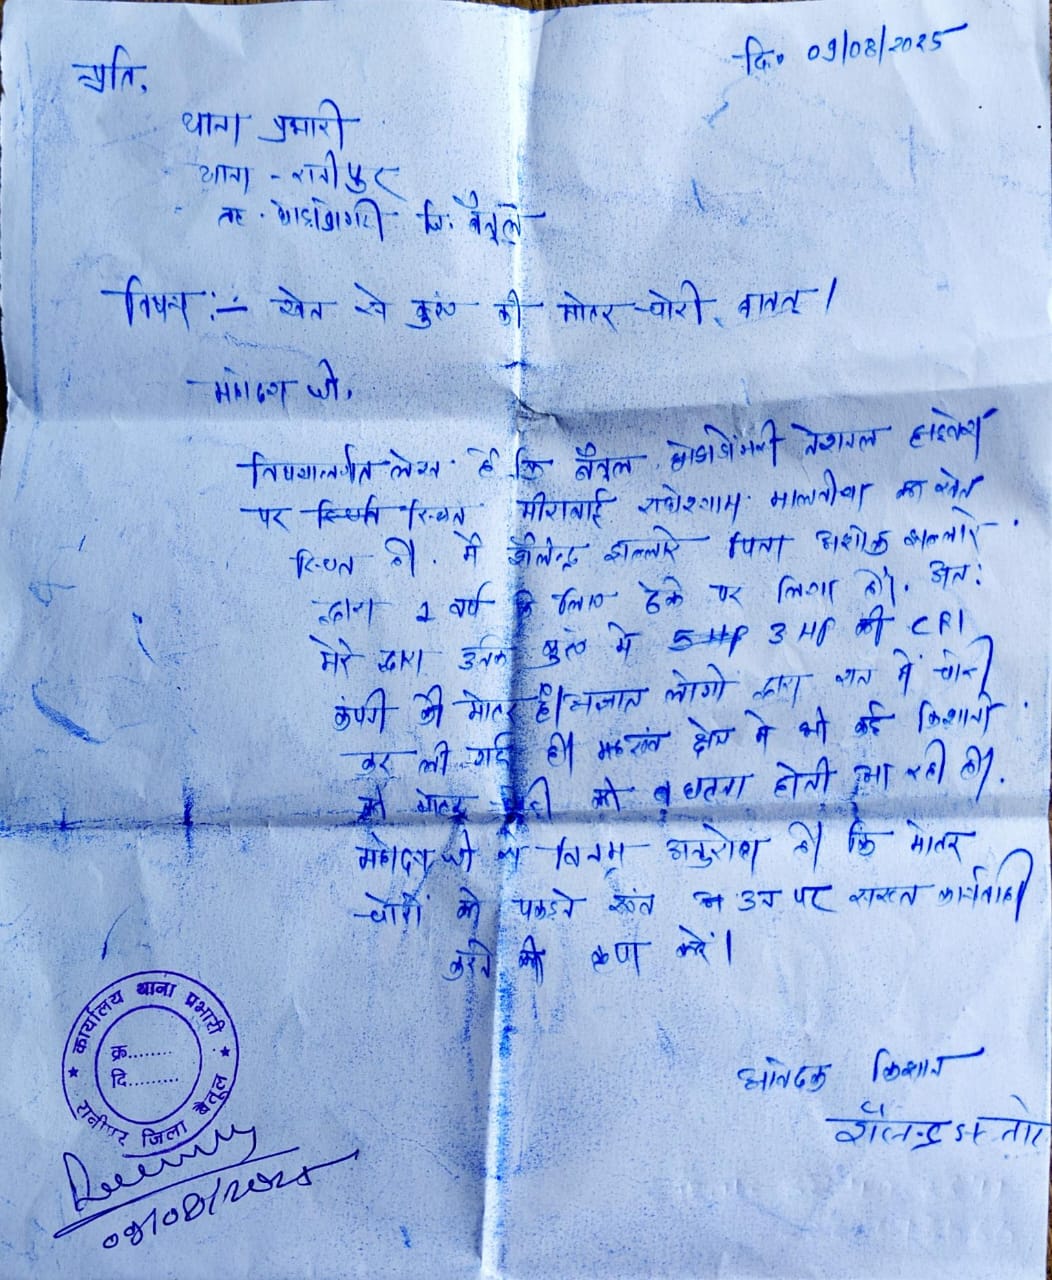 दि० 09/08/2025
प्रति,
थाना प्रभारी
थाना - रानीपुर
तह. घोड़ाडोंगरी जि. बैतूल
विषय :- खेत से कुएं की मोटर चोरी बाबत् ।
महोदय जी,
विषयान्तर्गत लेख है कि बैतूल घोडाडोंगरी नेशनल हाइवे
पर स्थित मीराबाई राधेश्याम मालवीय का खेत
स्थित है। मैं शैलेन्द्र पिता अशोक
द्वारा 2 वर्ष के लिए ठेके पर लिया है। अतः
मेरे द्वारा उनके कुएं में 5 HP 3 HP की CRI
कंपनी की मोटर है। अज्ञात लोगो द्वारा रात में चोरी
कर ली गई है। एवं क्षेत्र में भी कई किशानो
की मोटर चोरी की घटना होती आ रही है।
महोदय जी से विनम्र अनुरोध है कि मोटर
चोरों को पकडने एवं उन पर सख्त कार्यवाही
करने की कृपा करें।
आवेदक किशान
शैलेन्द्र
कार्यालय थाना प्रभारी
क्र........
दि.........
रानीपुर जिला बैतूल
09/08/2025